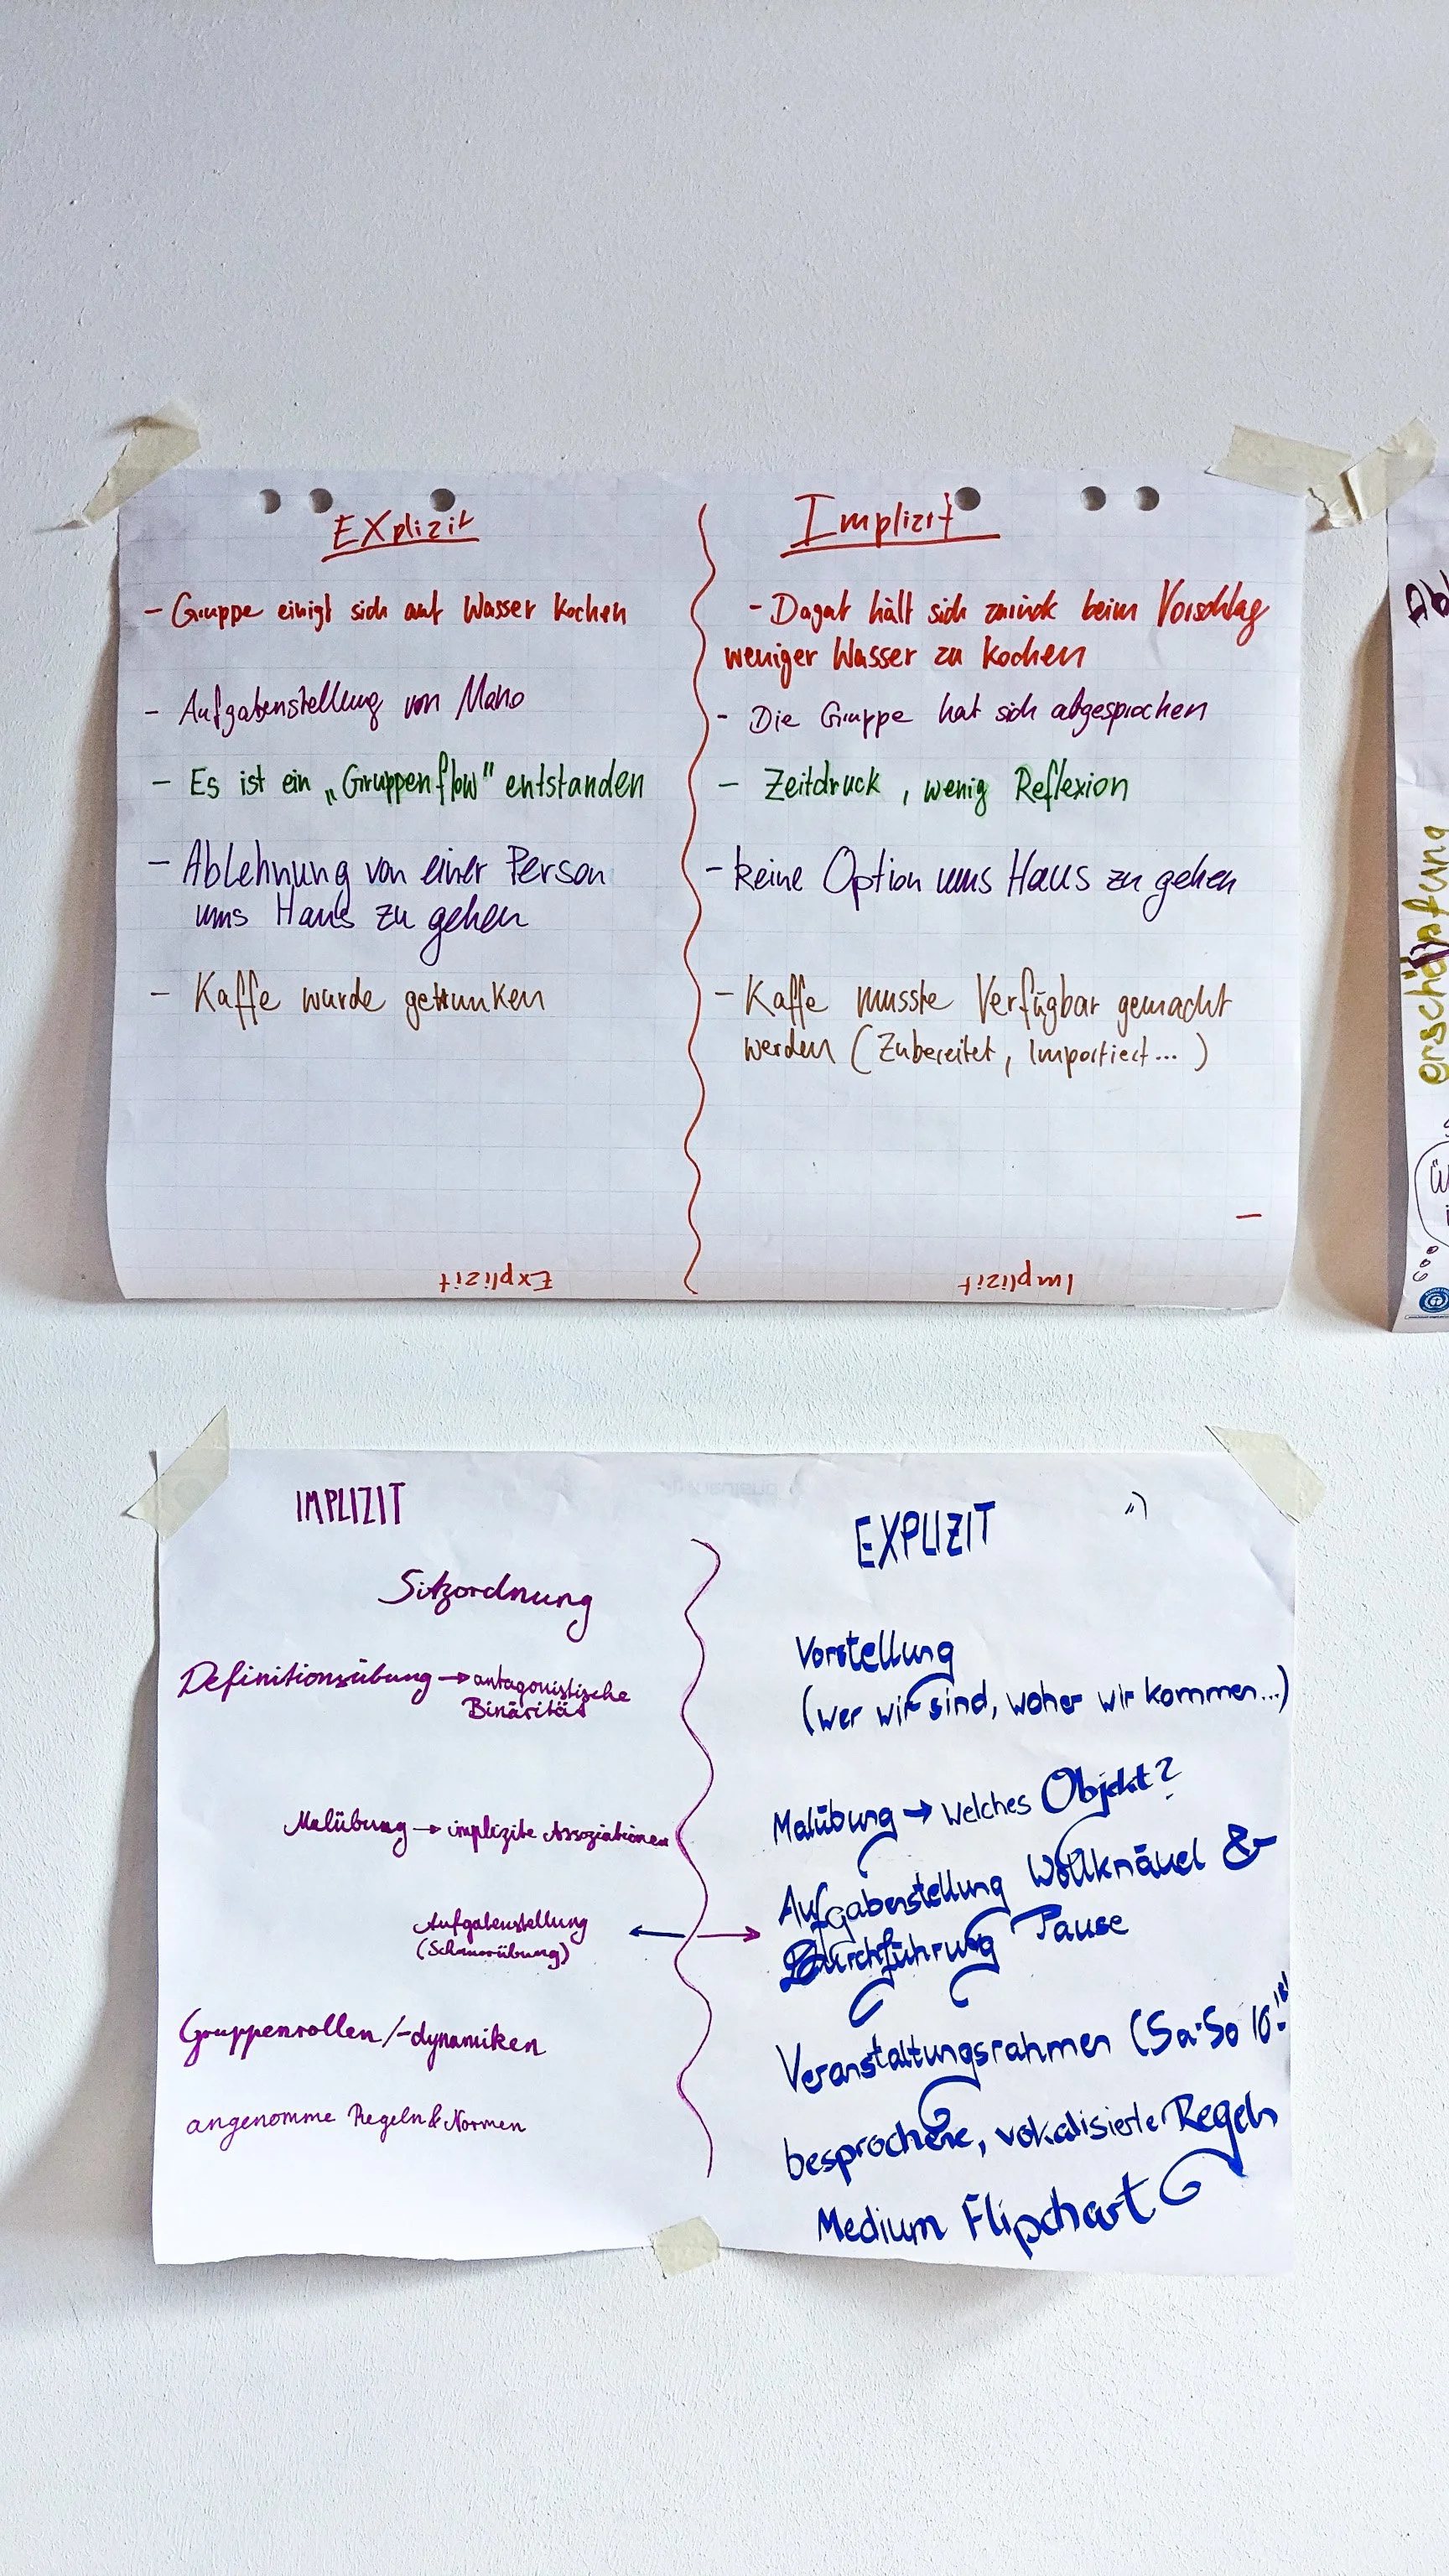 EXplizit
- Gruppe einigt sich auf Wasser kochen
- Aufgabenstellung von Mano
- Es ist ein „Gruppenflow" entstanden
- Ablehnung von einer Person
ums Haus zu gehen
- Kaffe wurde getrunken
Explizit
Implizit
- Dagat hält sich zurück beim Vorschlag
weniger Wasser zu kochen
- Die Gruppe hat sich abgesprochen
- Zeitdruck, wenig Reflexion
- keine Option ums Haus zu gehen
- Kaffe musste Verfügbar gemacht
werden (Zubereitet, Importiert...)
Implizit
erschöpfung
IMPLIZIT
Sitzordnung
Definitionsübung → antagonistische
Binärität
Malübung → implizite Assoziationen
Aufgabenstellung
Gruppenrollen/-dynamiken
angenomme Regeln & Normen
EXPLIZIT
Vorstellung
(wer wir sind, woher wir kommen...)
Malübung → welches Objekt?
Aufgabenstellung Wollknäuel &
Durchführung Pause
Veranstaltungsrahmen (Sa-So 10
besprochene, vokalisierte Regeln
Medium Flipchart